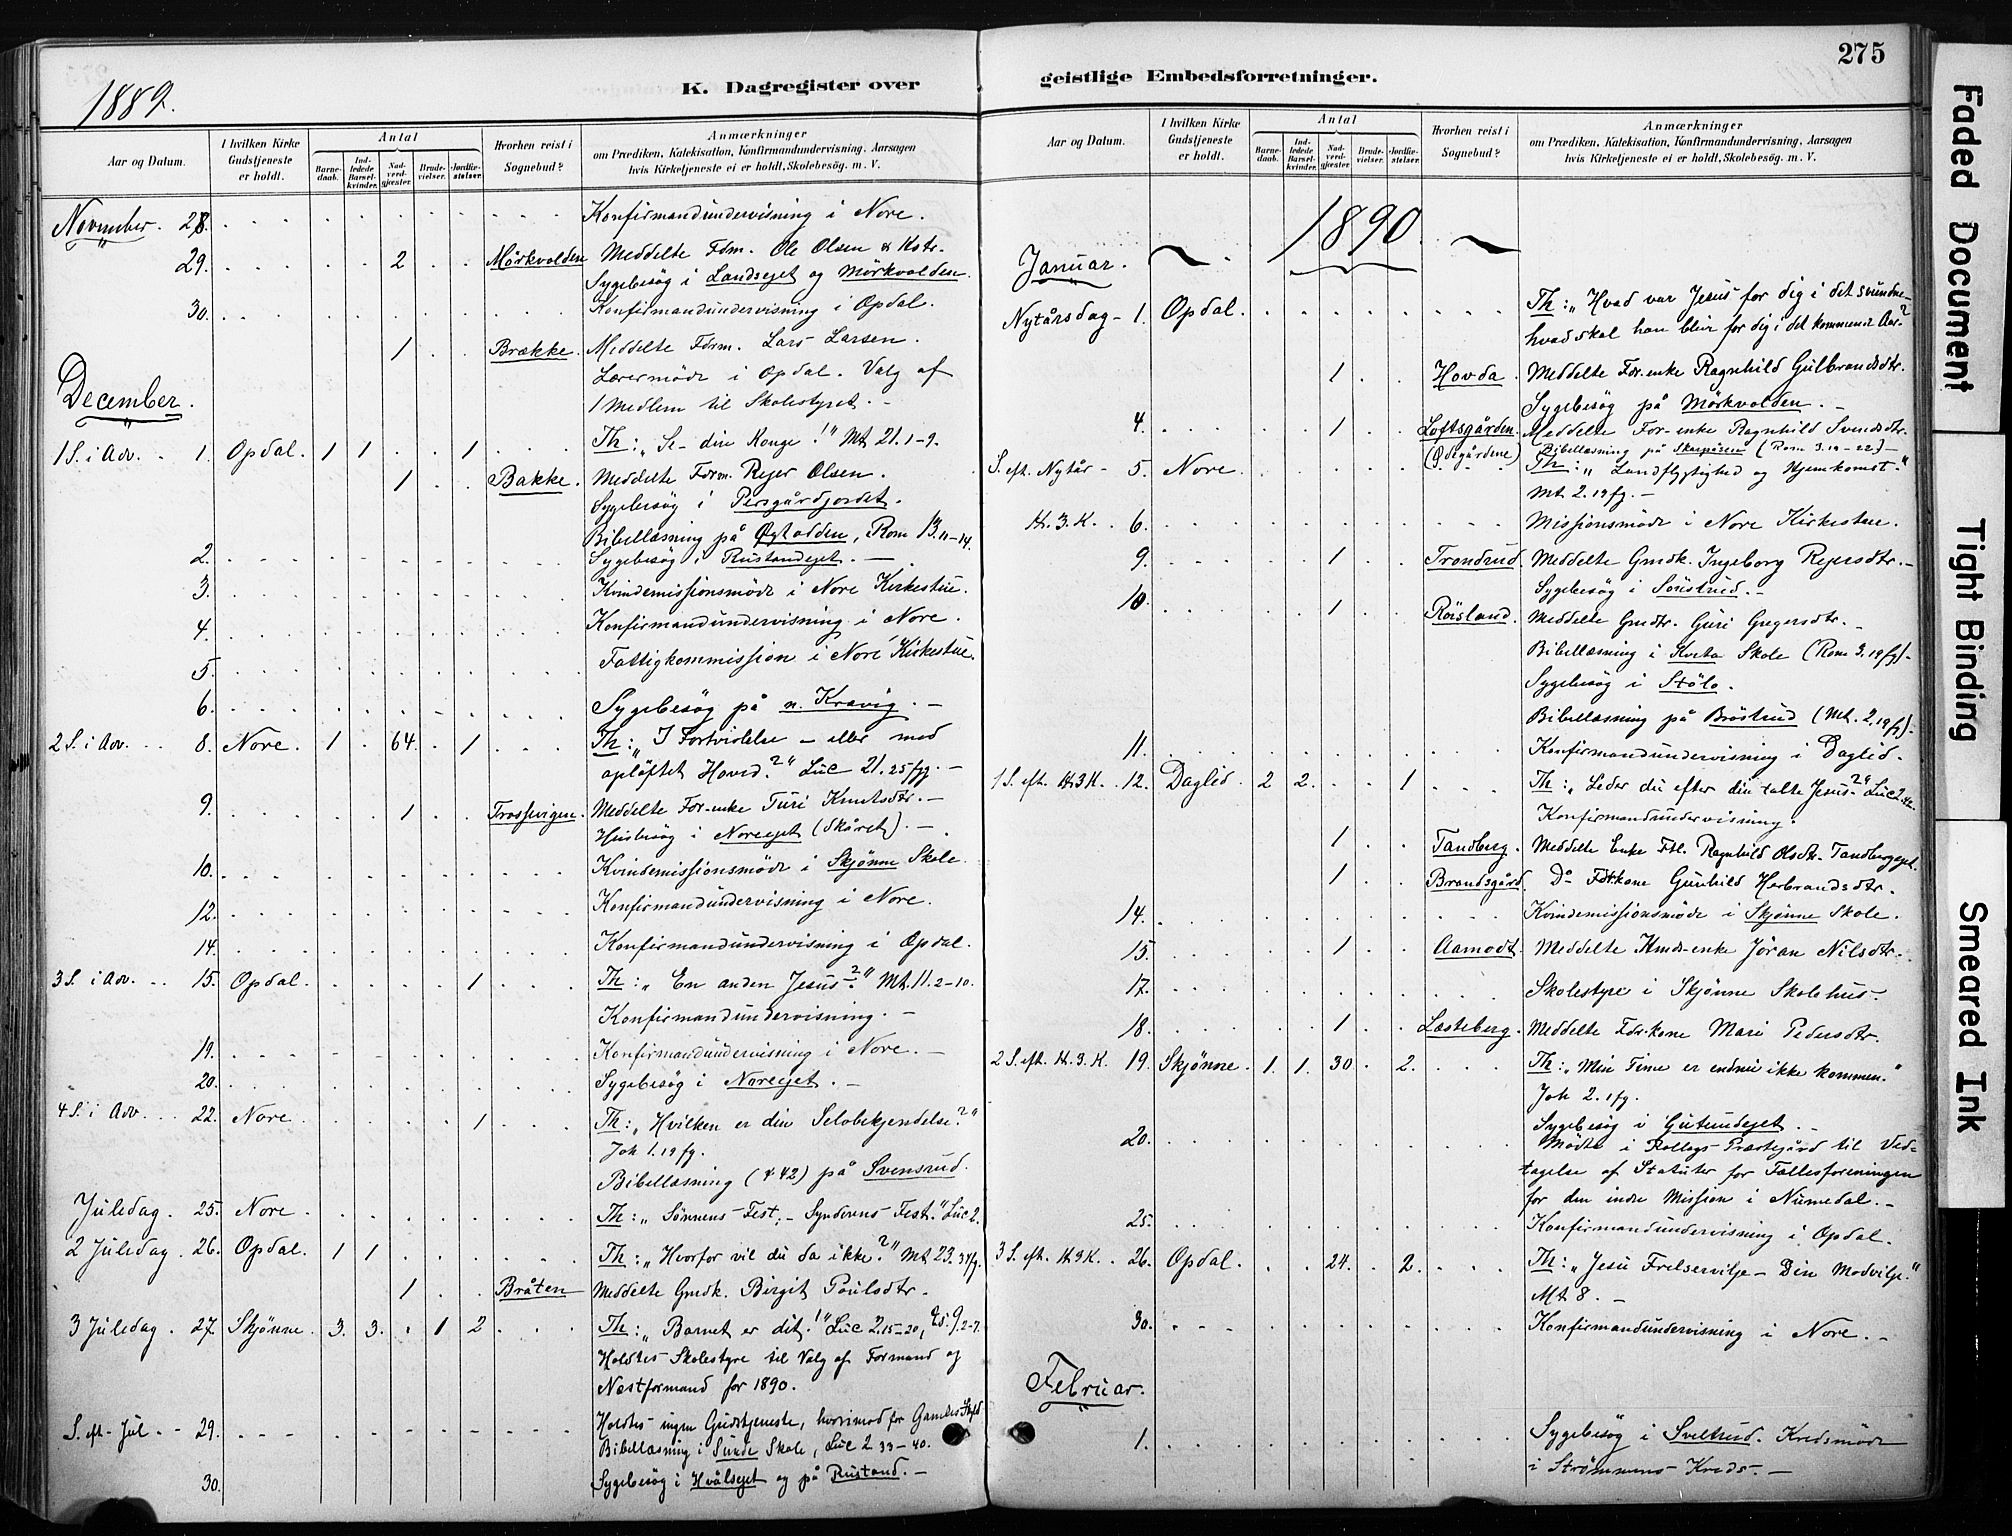 275
1889.
K. Dagregister over
geistlige Embedsforretninger.
Aar og Datum.
I hvilken Kirke Gudstjeneste er holdt.
Antal
Barnedaab.
Indledede Barselkvinder.
Nadverdgjester.
Brudevielser.
Jordfæstelser.
Hvorhen reist i Sognebud?
Anmærkninger
om Prædiken, Katekisation, Konfirmandundervisning. Aarsagen
hvis Kirketjeneste ei er holdt, Skolebesøg. m. V.
November. 28. Konfirmandundervisning i Nore.
29. 2 Mörkvolden Meddelte Fdm. Ole Olsen & Kstr.
Sygebesög i Landsejet og Mörkvolden.
30. Konfirmandundervisning i Opdal.
1 Brække. Meddelte Fdrm. Lars Larsen.
Lærermöde i Opdal. Valg af
December.
1 Medlem til Skolestyret. -
1 S. i Adv. 1. Opdal. 1 1 1 Th: „Se din Konge!" Mt 21. 1-9.
1 Bakke. Meddelte Fdrm. Rejer Olsen.
Sygebesög i Persgårdjordet.
Bibellæsning på , Rom 13. 11-14.
2. Sygebesög i Rustandejet. -
3. Kvindemissionsmöde i Nore Kirkestue.
4. Konfirmandundervisning i Nore.
5. Fattigkommission i Nore Kirkestue.
6. Sygebesög på n. Kravig. -
2 S. i Adv. 8. Nore. 1 64. 1 Th: „I Fortvivlelse - eller med
oplöftet Hoved?" Luc 21. 25 fg. -
9. 1 Trossevigen. Meddelte For.enke Turi Knutsdtr. -
Husbesög i Norejet (Skåret). -
10. Kvindemissionsmöde i Skjønne Skole.
12. Konfirmandundervisning i Nore.
14. Konfirmandundervisning i Opdal.
3 S. i Adv. 15. Opdal. 1 Th: „En anden Jesus?" Mt. 11. 2-10.
Konfirmandundervisning. -
19. Konfirmandundervisning i Nore. -
20. Sygebesög i Norejet. -
4 S. i Adv. 22. Nore. 1 Th: „Hvilken er din Selvbekjendelse?"
Joh 1. 19 fg.
Bibellæsning (& 42) på Svensrud.
Juledag. 25. Nore. Th: „Sönnens Fest, - Synderens Fest." Luc 2.
2 Juledag. 26. Opdal. 1 1 Th: „Hvorfor vil du da ikke?" Mt 23. 34 fg.
1 Bråten Meddelte Gmdk. Birgit Poulsdtr.
3 Juledag. 27. Skjønne. 3. 3. 1 2 Th: „Barnet er dit!" Luc 2. 15-20, Es. 9. 2-7.
Holdtes Skolestyre til Valg af Formand og
Næstformand for 1890.
S. eft. Jul. 29. Holdtes ingen Gudstjeneste, hvorimod for Gamles Skyld
Bibellæsning i Sunde Skole, Luc 2 33-40.
30. Sygebesög i Hvålsejet og på Rustand. -
Aar og Datum.
I hvilken Kirke Gudstjeneste er holdt.
Antal
Barnedaab.
Indledede Barselkvinder.
Nadverdgjester.
Brudevielser.
Jordfæstelser.
Hvorhen reist i Sognebud?
Anmærkninger
om Prædiken, Katekisation, Konfirmandundervisning, Aarsagen
hvis Kirketjeneste ei er holdt, Skolebesøg. m. V.
1890.
Januar.
Nytårsdag - 1. Opdal. Th: „Hvad var Jesus for dig i det svundne -
hvad skal han blive for dig i det kommende Aar?"
1 Hovda. Meddelte For.enke Ragnhild Gulbrandsdtr.
Sygebesög på Mörkvolden. -
4. 1 Loftsgården. Meddelte For.enke Ragnhild Svendsdtr.
Bibellæsning på (Rom 3. 19-22) -
S. eft. Nytår - 5. Nore. Th: „Landflygtighed og Hjemkomst."
Mt. 2. 19 fg. -
H. 3. K. 6. Missionsmöde i Nore Kirkestue.
9. 1 Trondrud. Meddelte Gmdk. Ingeborg Rejersdtr. -
Sygebesög i Sönstrud. -
10. 1 Röisland. Meddelte Gmdtr. Guri Gregersdtr. -
Bibellæsning i Kvita Skole (Rom 3. 19 fg) -
Sygebesög i Stölo.
Bibellæsning på Bröstrud (Mt. 2. 19 fg) -
11. Konfirmandundervisning i Daglid.
1 S. eft. H. 3 K. 12. Daglid. 2 2. 1 Th: „Leder du efter din tabte Jesus?" Luc 2. 42.
Konfirmandundervisning.
1 Tandberg. Meddelte Enke Ftl. Ragnhild Olsdtr. Tandbergejet.
1 Brandsgård. Do Fdr.kone Gunhild Herbrandsdtr.
14. Kvindemissionsmöde i Skjønne Skole.
15. 1 Aamodt. Meddelte Kmds.enke Jöran Nilsdtr.
17. Skolestyre i Skjønne Skolehus.
18. 1 Læsteberg. Meddelte Fdr.kone Mari Pedersdtr.
2 S. eft. H. 3. K. 19. Skjønne. 1. 1. 30. 2. Th: „Min Time er endnu ikke kommen."
Joh 2. 1 fg.
Sygebesög i Gutundejet.
20. Möde i Rollags Præstegård til Vedtagelse
af Statuter for Fællesforeningen
for den indre Mission i Numedal. -
25. Konfirmandundervisning i Opdal.
3 S. eft. H. 3 K. 26. Opdal. 24. 2. Th: „Jesu Frelservilje - Din Modvilje."
Mt 8. -
30. Konfirmandundervisning i Nore. -
Februar.
1. Sygebesög i Sveltrud. Kredsmöde
i Strömmens Kreds. -
Faded Document
Tight Binding
Smeared Ink